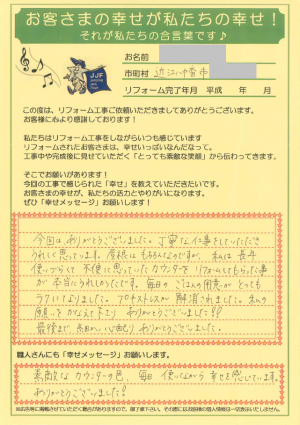 お客さまの幸せが私たちの幸せ！
それが私たちの合言葉です♪
JJF
お名前
市町村 近江八幡市
リフォーム完了年月 平成 年 月
この度は、リフォーム工事ご依頼いただきましてありがとうございます。
お客様に心より感謝しております！
私たちはリフォーム工事をしながらいつも感じています
リフォームされたお客さまは、幸せいっぱいなんだなって。
工事中や完成後に見せていただく「とっても素敵な笑顔」から伝わってきます。
そこでお願いがあります！
今回の工事で感じられた「幸せ」を教えていただきたいです。
お客さまの幸せが、私たちの活力とやりがいになります。
ぜひ「幸せメッセージ」お願いします！
今回は、ありがとうございました。丁寧な仕事をしていただき
うれしく思っています。屋根はもちろんなのですが、私は長年
使いづらくて不便に思っていたカウンターをリフォームしてもらった事
が本当にうれしかったです。毎日のごはんの用意がとっても
ラクになりました。プロのストレスが解消されました。私の
願いをかなえて下さりありがとうございました!!
最後まで細かい心配りありがとうございました。
職人さんにも「幸せメッセージ」お願いします。
素敵なカウンターの色、毎日使いながら幸せを感じています。
ありがとうございました!